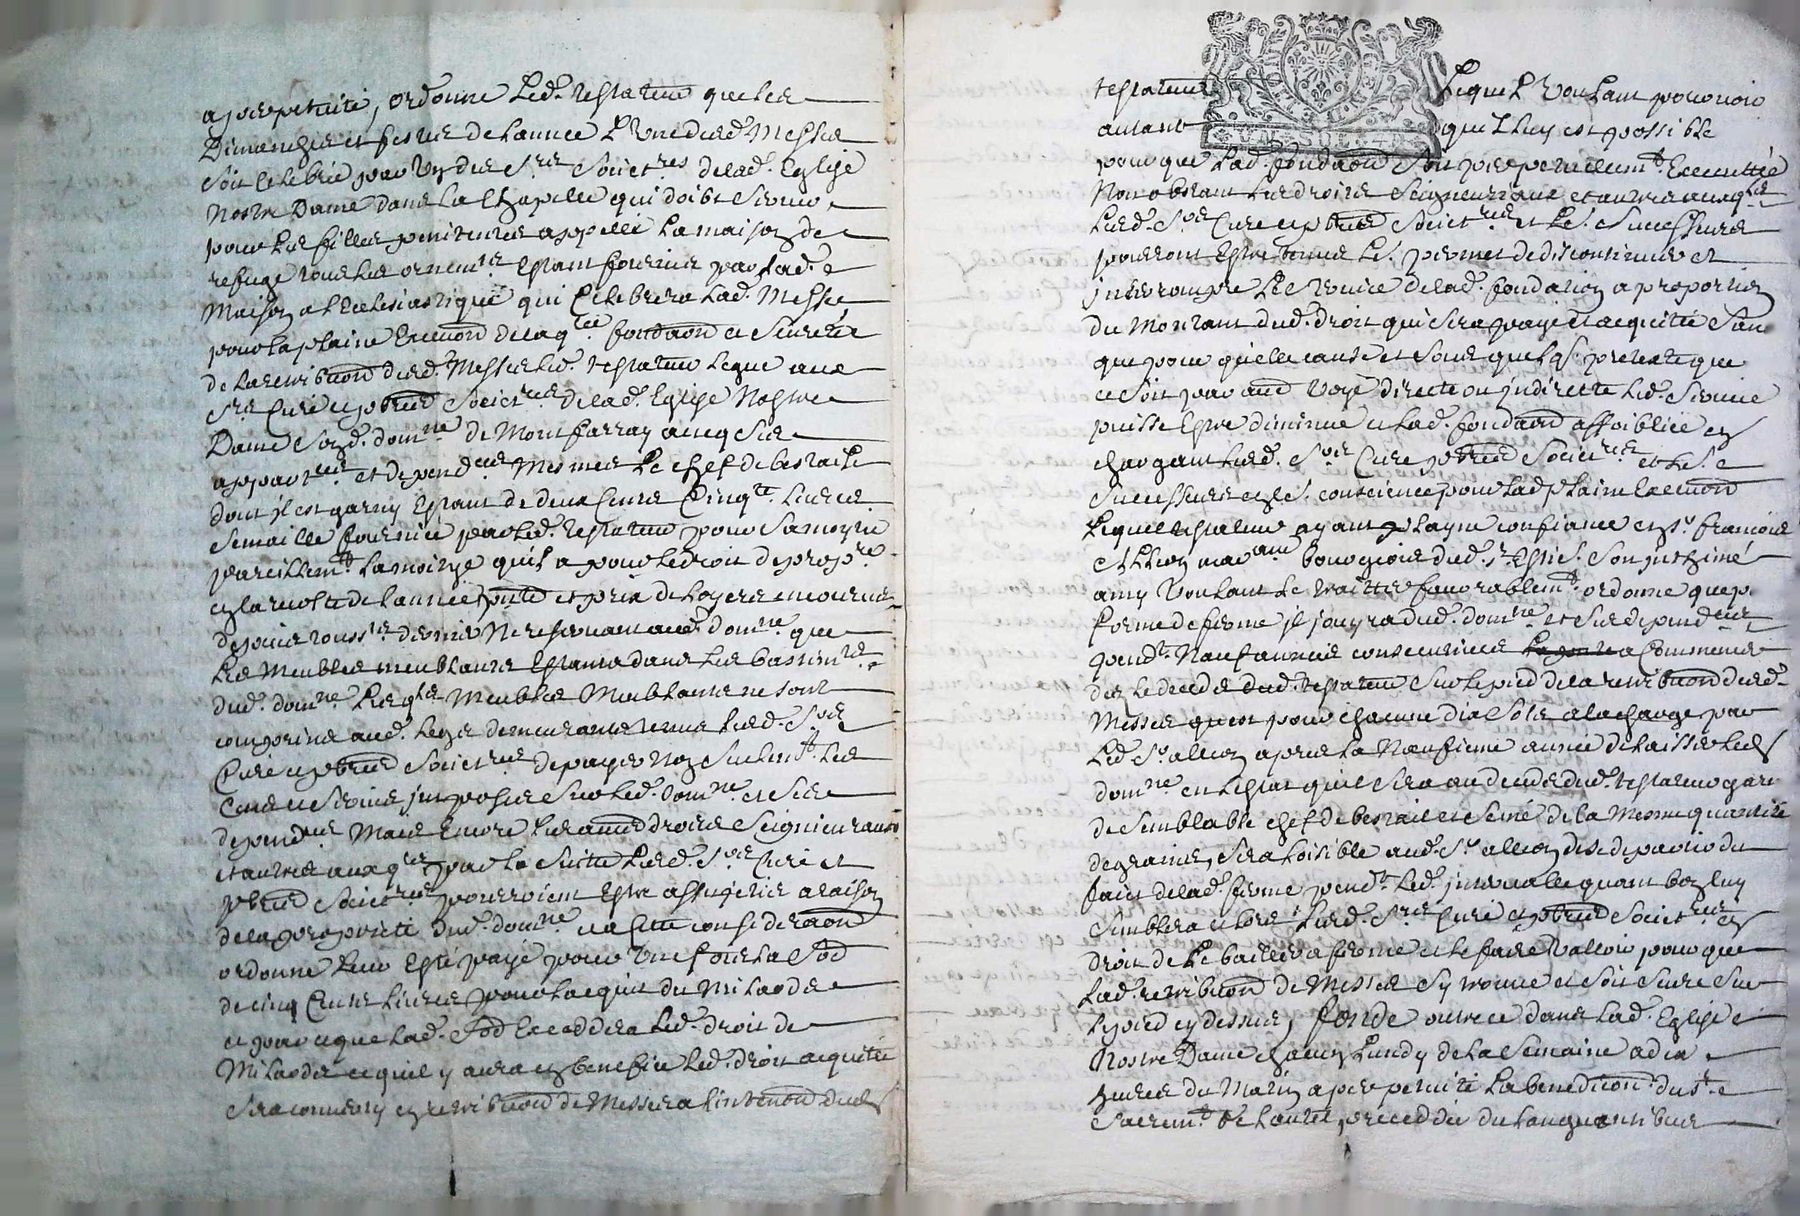 a perpetuité, ordonne led. testateur que les
Dimanches et festes de lannee l'une desd. Messes
soit celebrée par un des Srs Societres de lad. Eglise
Nostre Dame dans la Chapelle qui doibt servir
pour les filles penitentes appellé la maison de
refuge tous les ornemts estant fournis par lad.
Maison a lEclesiastique qui Celebrera lad. Messe
pour la plaine execuon de laqlle fondaon et seureté
de la retribuon desd. Messes led. testateur legue aux
Srs Curé et pbres Societres de lad. Eglise Nostre
Dame son d. domne de Montfarray avecq ses
appartces et dependces mesmes le chef de bestails
dont il est garny estant de deux Cents Cinqte livres
semaille fournie par led. testateur pour sa moytie
pareillemt la moitye quil a pour le droit de propre
en la recolte de lannee pnte et prix de loyers encourus
depuis toussts dernier Ne reservant aud. domne que
les Meubles meublants estants dans les bastimts
dud. domne lesqls Meubles Meublants ne sont
comprins aud. legs demeurants tenus lesd. Srs
Curé et pbres Societres de payer non seulemt les
Cens et servis imposés sur led. domne et ses
dependces Mais Encore les autres droits Seigneuriaux
et autres auxqls par la suitte lesd. Srs Curé et
pbres Societres pourroient estre assugetis a raison
de la proprieté dud. domne et a cette consideraon
ordonne leur estre payé pour une fois la Sod
de cinq Cents livres pour lacquit du Milaods
et par ce que lad. Sod exceddera led. droit de
Milaods ce quil y aura en benefice led. droit acquitté
sera converty en retribuon de Messes a lintenon dud.
testateur Lequel Voulant pourvoir
autant quil luy est possible
pour que lad. fondaon soit perpetuellemt Executtée
Nonobstant les droits Seigneuriaux et autres auxqls
lesd. Srs Curé et pbres Societres et les. Successeurs
pourront Estre tenus les. permet de discontinuer et
interrompre le service de lad. fondation a proportion
du Montant dud. droit qui sera payé et acquitté sans
que pour quelle cause et sous quelq. pretexte que
ce soit par aucune voye directe ou indirecte led. service
puisse Estre diminué et lad. fondaon affoiblie en
chargeant lesd. Srs Curé pbres Societres et les.
Successeurs en les. conscience pour lad. plaine Execuon
lequel testateur ayant plaine confiance en sr. francois
bourgeois dud. St. Este. son inthime
amy Voulant le traitter favorablemt ordonne que p.
forme de ferme il jouyra dud. domne et ses dependces
pendt. Neuf années consecutives a Commencer
des le decedz dud. testateur sur le pied de la retribuon desd.
Messes qui est pour chacune dix sols a la charge par
led. Sr. allier apres la Neufieme année de laisser led.
domne en lestat quil sera au decedz dud. testateur garn
de semblable chef de bestail et semé de la mesme quantité
de grains, sera loisible aud. Sr. allier de se departir du
faict de lad. ferme pendt. led. intervalle quant bon luy
semblera et lors lesd. Srs Curé et pbres Societres en
droit de le bailler a ferme et le faire Valloir pour que
lad. retribuon de Messes sy trouve et soit seure sur
le pied cy dessus, fonde outre ce dans lad. Eglise
Nostre Dame chacun Lundy de la semaine a dix
heures du Matin a perpetuité la benediction du St.
Sacremt de lautel, precedde du Langentibus